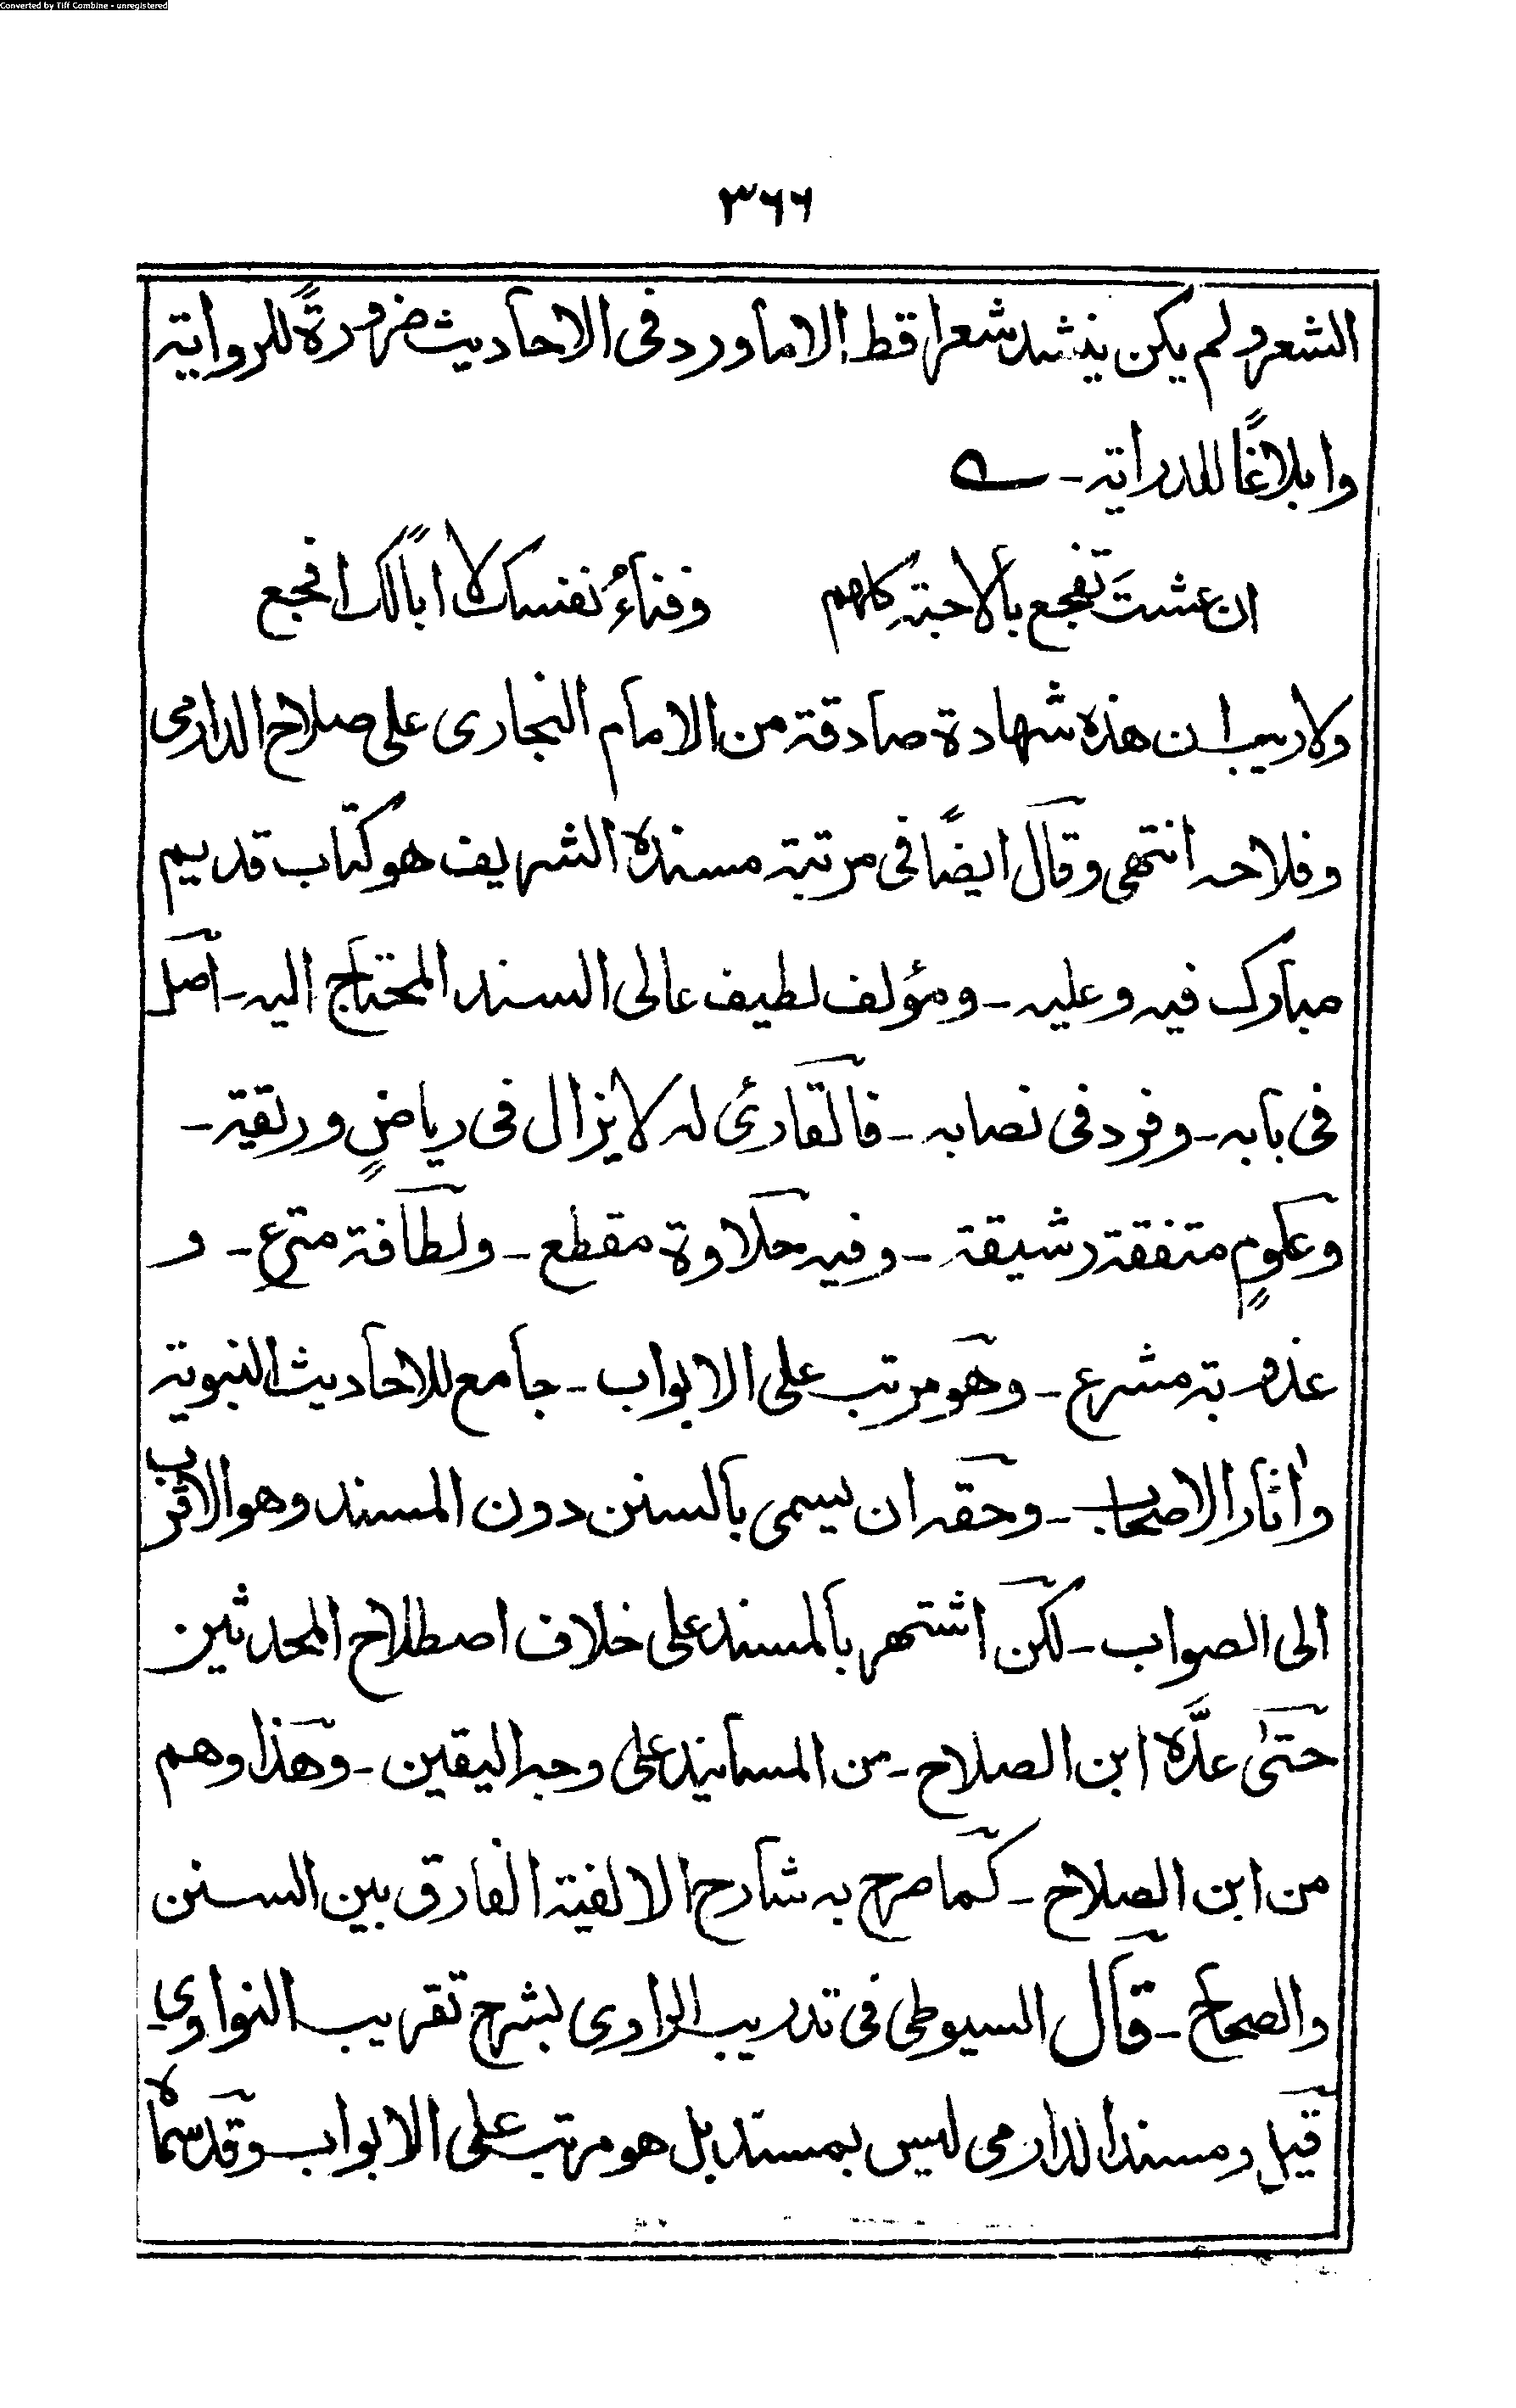 Converted by Tiff Combine - unregistered
٣٦٦
الشعر ولم يكن ينشد شعرا قط الا ما ورد فى الاحاديث ضرورةً للرواية
وابلاغًا للدراية ـ
ان عشتَ تفجع بالاحبةِ كلهم وفناءُ نفسك لا ابًالك افجع
ولا ريب ان هذه شهادة صادقة من الامام البخارى على صلاح الدارمى
وفلاحه انتهى وقال ايضًا فى مرتبة مسنده الشريف هو كتاب قديم
مبارك فيه وعليه ـ ومؤلف لطيف عالى السند المحتاج اليه ـ اصل
فى بابه ـ وفرد فى نصابه ـ فالقارئ له لا يزال فى رياضٍ وريقة ـ
وعلومٍ متفقة رشيقة ـ وفيه حلاوة مقطع ـ ولطافة مترع ـ و
عذوبة مشرع ـ وهو مرتب على الابواب ـ جامع للاحاديث النبوية
واٰثار الاصحاب ـ وحقه ان يسمى بالسنن دون المسند وهو الاقرب
الى الصواب ـ لكن اشتهر بالمسند على خلاف اصطلاح المحدثين
حتىٰ عدَّه ابن الصلاح ـ من المسانيد على وجه اليقين ـ وهذا وهم
من ابن الصلاح ـ كما صرح به شارح الالفية الفارق بين السنن
والصحاح ـ قال السيوطى فى تدريب الراوى بشرح تقريب النواوي ـ
قيل ومسند الدارمى ليس بمسند بل هو مرتب على الابواب وقد سماه